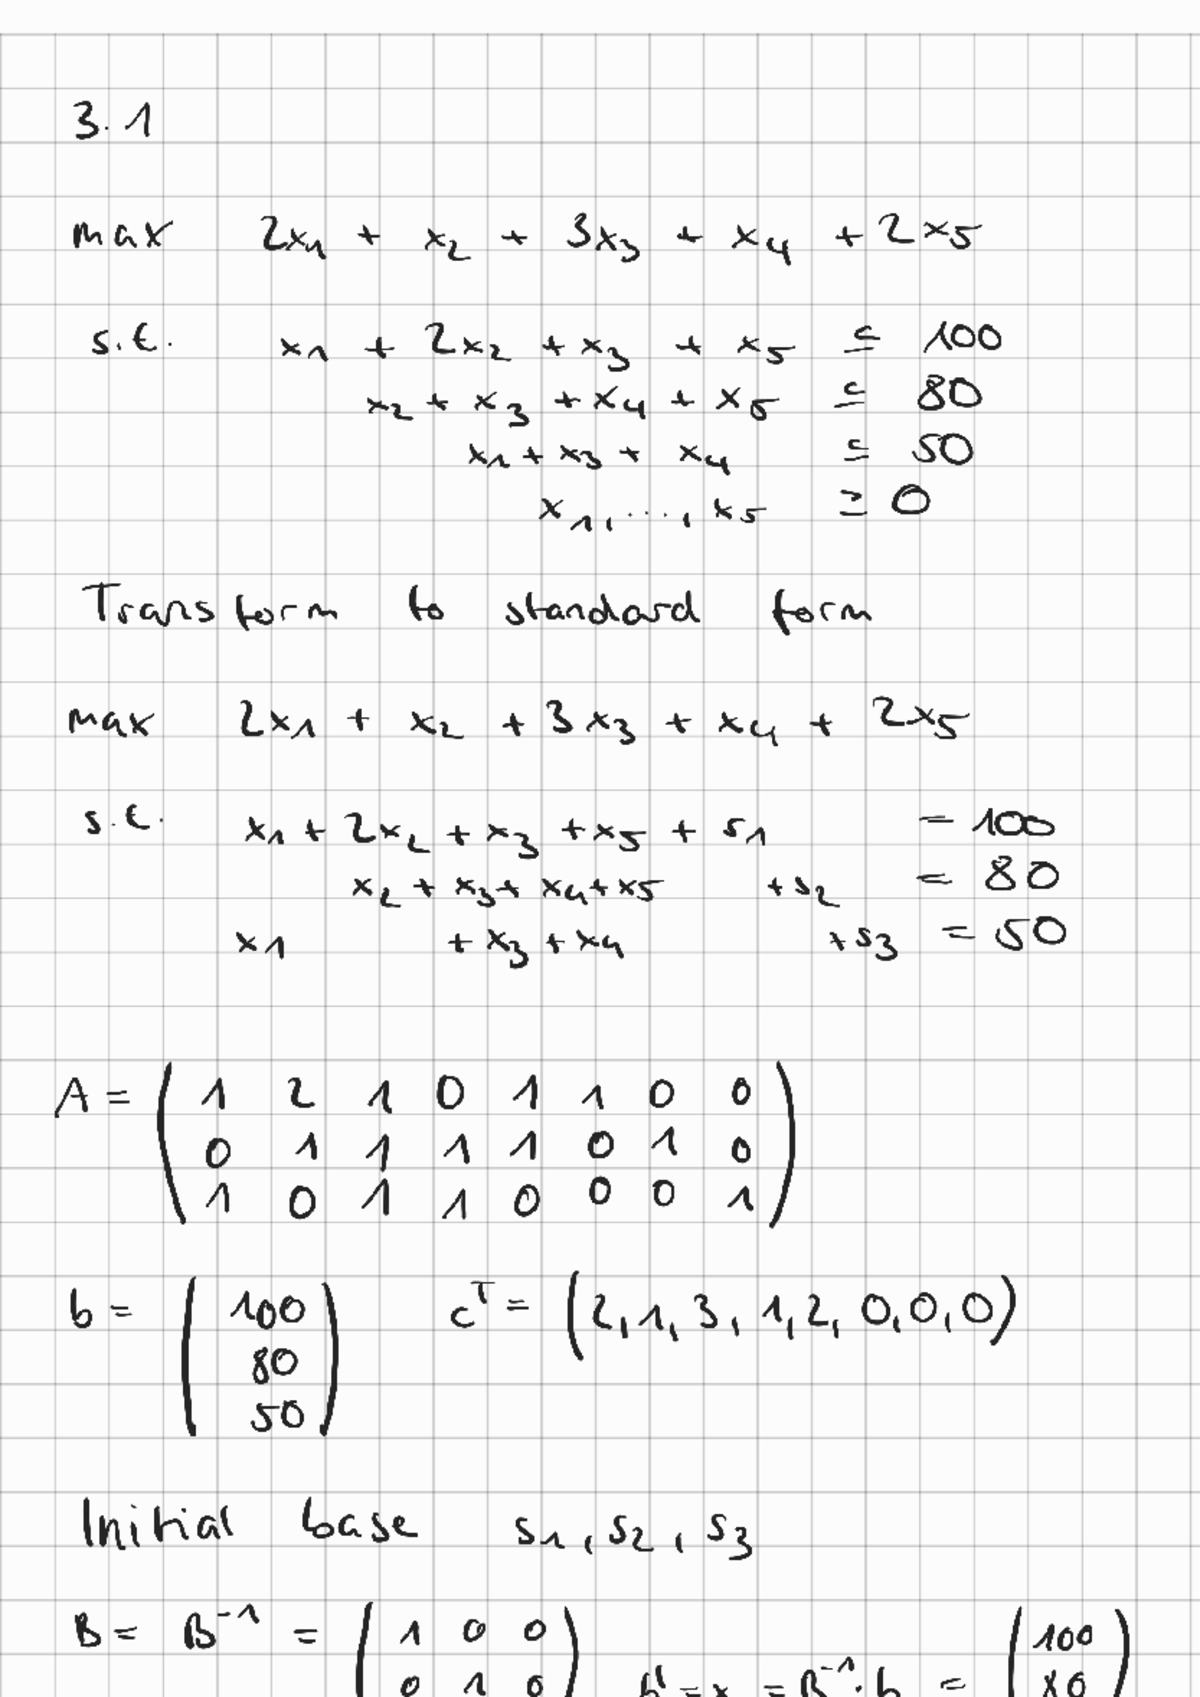 3.1
max 2x₁ + x₂ + 3x₃ + x₄ + 2x₅
s.t. x₁ + 2x₂ + x₃ + x₅ ≤ 100
x₂ + x₃ + x₄ + x₅ ≤ 80
x₁ + x₃ + x₄ ≤ 50
x₁, ..., x₅ ≥ 0
Transform to standard form
max 2x₁ + x₂ + 3x₃ + x₄ + 2x₅
s.t. x₁ + 2x₂ + x₃ + x₅ + s₁ = 100
x₂ + x₃ + x₄ + x₅ + s₂ = 80
x₁ + x₃ + x₄ + s₃ = 50
A = ( 1 2 1 0 1 1 0 0
0 1 1 1 1 0 1 0
1 0 1 1 0 0 0 1 )
b = ( 100 80 50 ) cᵀ = (2, 1, 3, 1, 2, 0, 0, 0)
Initial base s₁, s₂, s₃
B = B⁻¹ = ( 1 0 0 ( 100
0 1 0 = B⁻¹ · b = 80